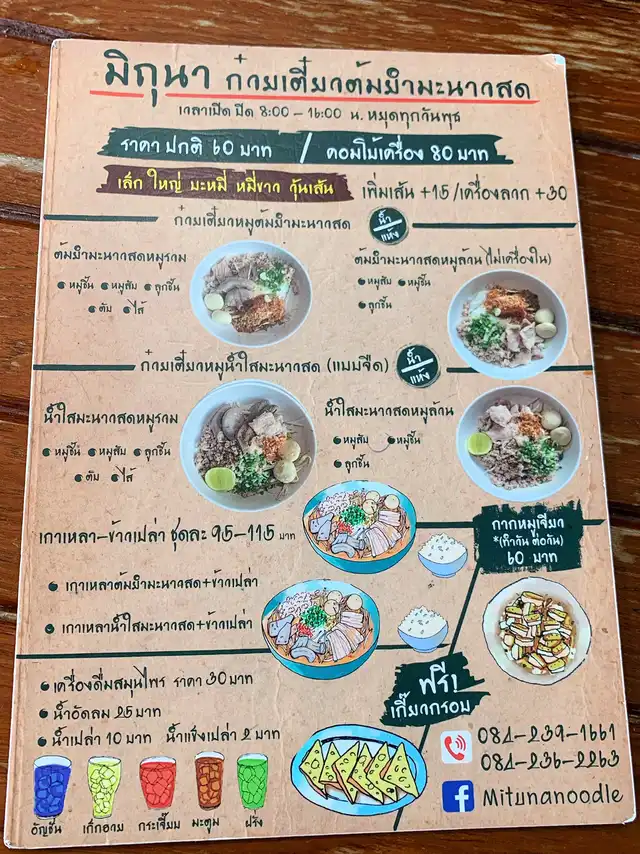 มิถุนา ก๋วยเตี๋ยวต้มยำมะนาวสด
เวลาเปิด ปิด 8:00 - 16:00 น. หยุดทุกวันพุธ
ราคา ปกติ 60 บาท / คอมโบ้เครื่อง 80 บาท
เล็ก ใหญ่ บะหมี่ หมี่ขาว วุ้นเส้น เพิ่มเส้น +15/เครื่องลวก +30
ก๋วยเตี๋ยวหมูต้มยำมะนาวสด น้ำ แห้ง
ต้มยำมะนาวสดหมูรวม
หมูชิ้น หมูสับ ลูกชิ้น
ตับ ไส้
ต้มยำมะนาวสดหมูล้วน (ไม่เครื่องใน)
หมูสับ หมูชิ้น
ลูกชิ้น
ก๋วยเตี๋ยวหมูน้ำใสมะนาวสด (แบบจืด) น้ำ แห้ง
น้ำใสมะนาวสดหมูรวม
หมูชิ้น หมูสับ ลูกชิ้น
ตับ ไส้
น้ำใสมะนาวสดหมูล้วน
หมูสับ หมูชิ้น
ลูกชิ้น
เกาเหลา-ข้าวเปล่า ชุดละ 95-115 บาท
เกาเหลาต้มยำมะนาวสด+ข้าวเปล่า
เกาเหลาน้ำใสมะนาวสด+ข้าวเปล่า
กากหมูเจียว
60 บาท
เครื่องดื่มสมุนไพร ราคา 30 บาท
น้ำอัดลม 25 บาท
น้ำเปล่า 10 บาท น้ำแข็งเปล่า 2 บาท
อัญชัน เก็กฮวย กระเจี๊ยบ มะตูม ฝรั่ง
ฟรี!
เกี๊ยวกรอบ
084-239-1661
084-236-2263
Mitunanoodle